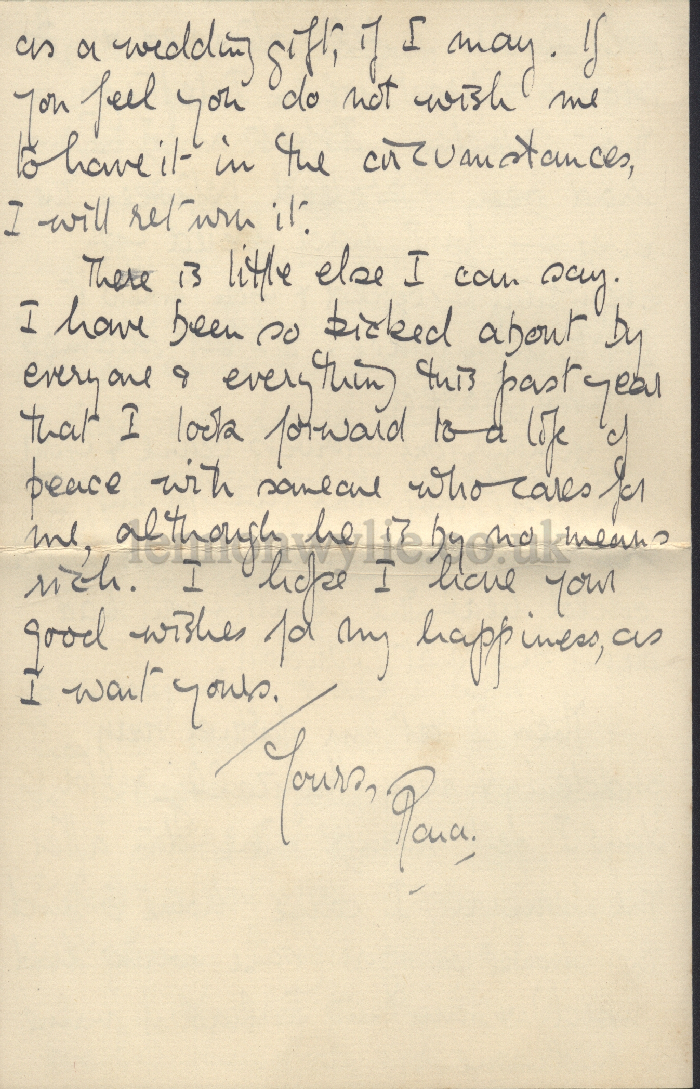 as a wedding gift, if I may. If
you feel you do not wish me
to have it in the circumstances,
I will return it.
There is little else I can say.
I have been so kicked about by
everyone & everything this past year
that I look forward to a life of
peace with someone who cares for
me, although he is by no means
lennonwylie.co.uk
rich. I hope I have your
good wishes for my happiness, as
I want yours.
Yours,